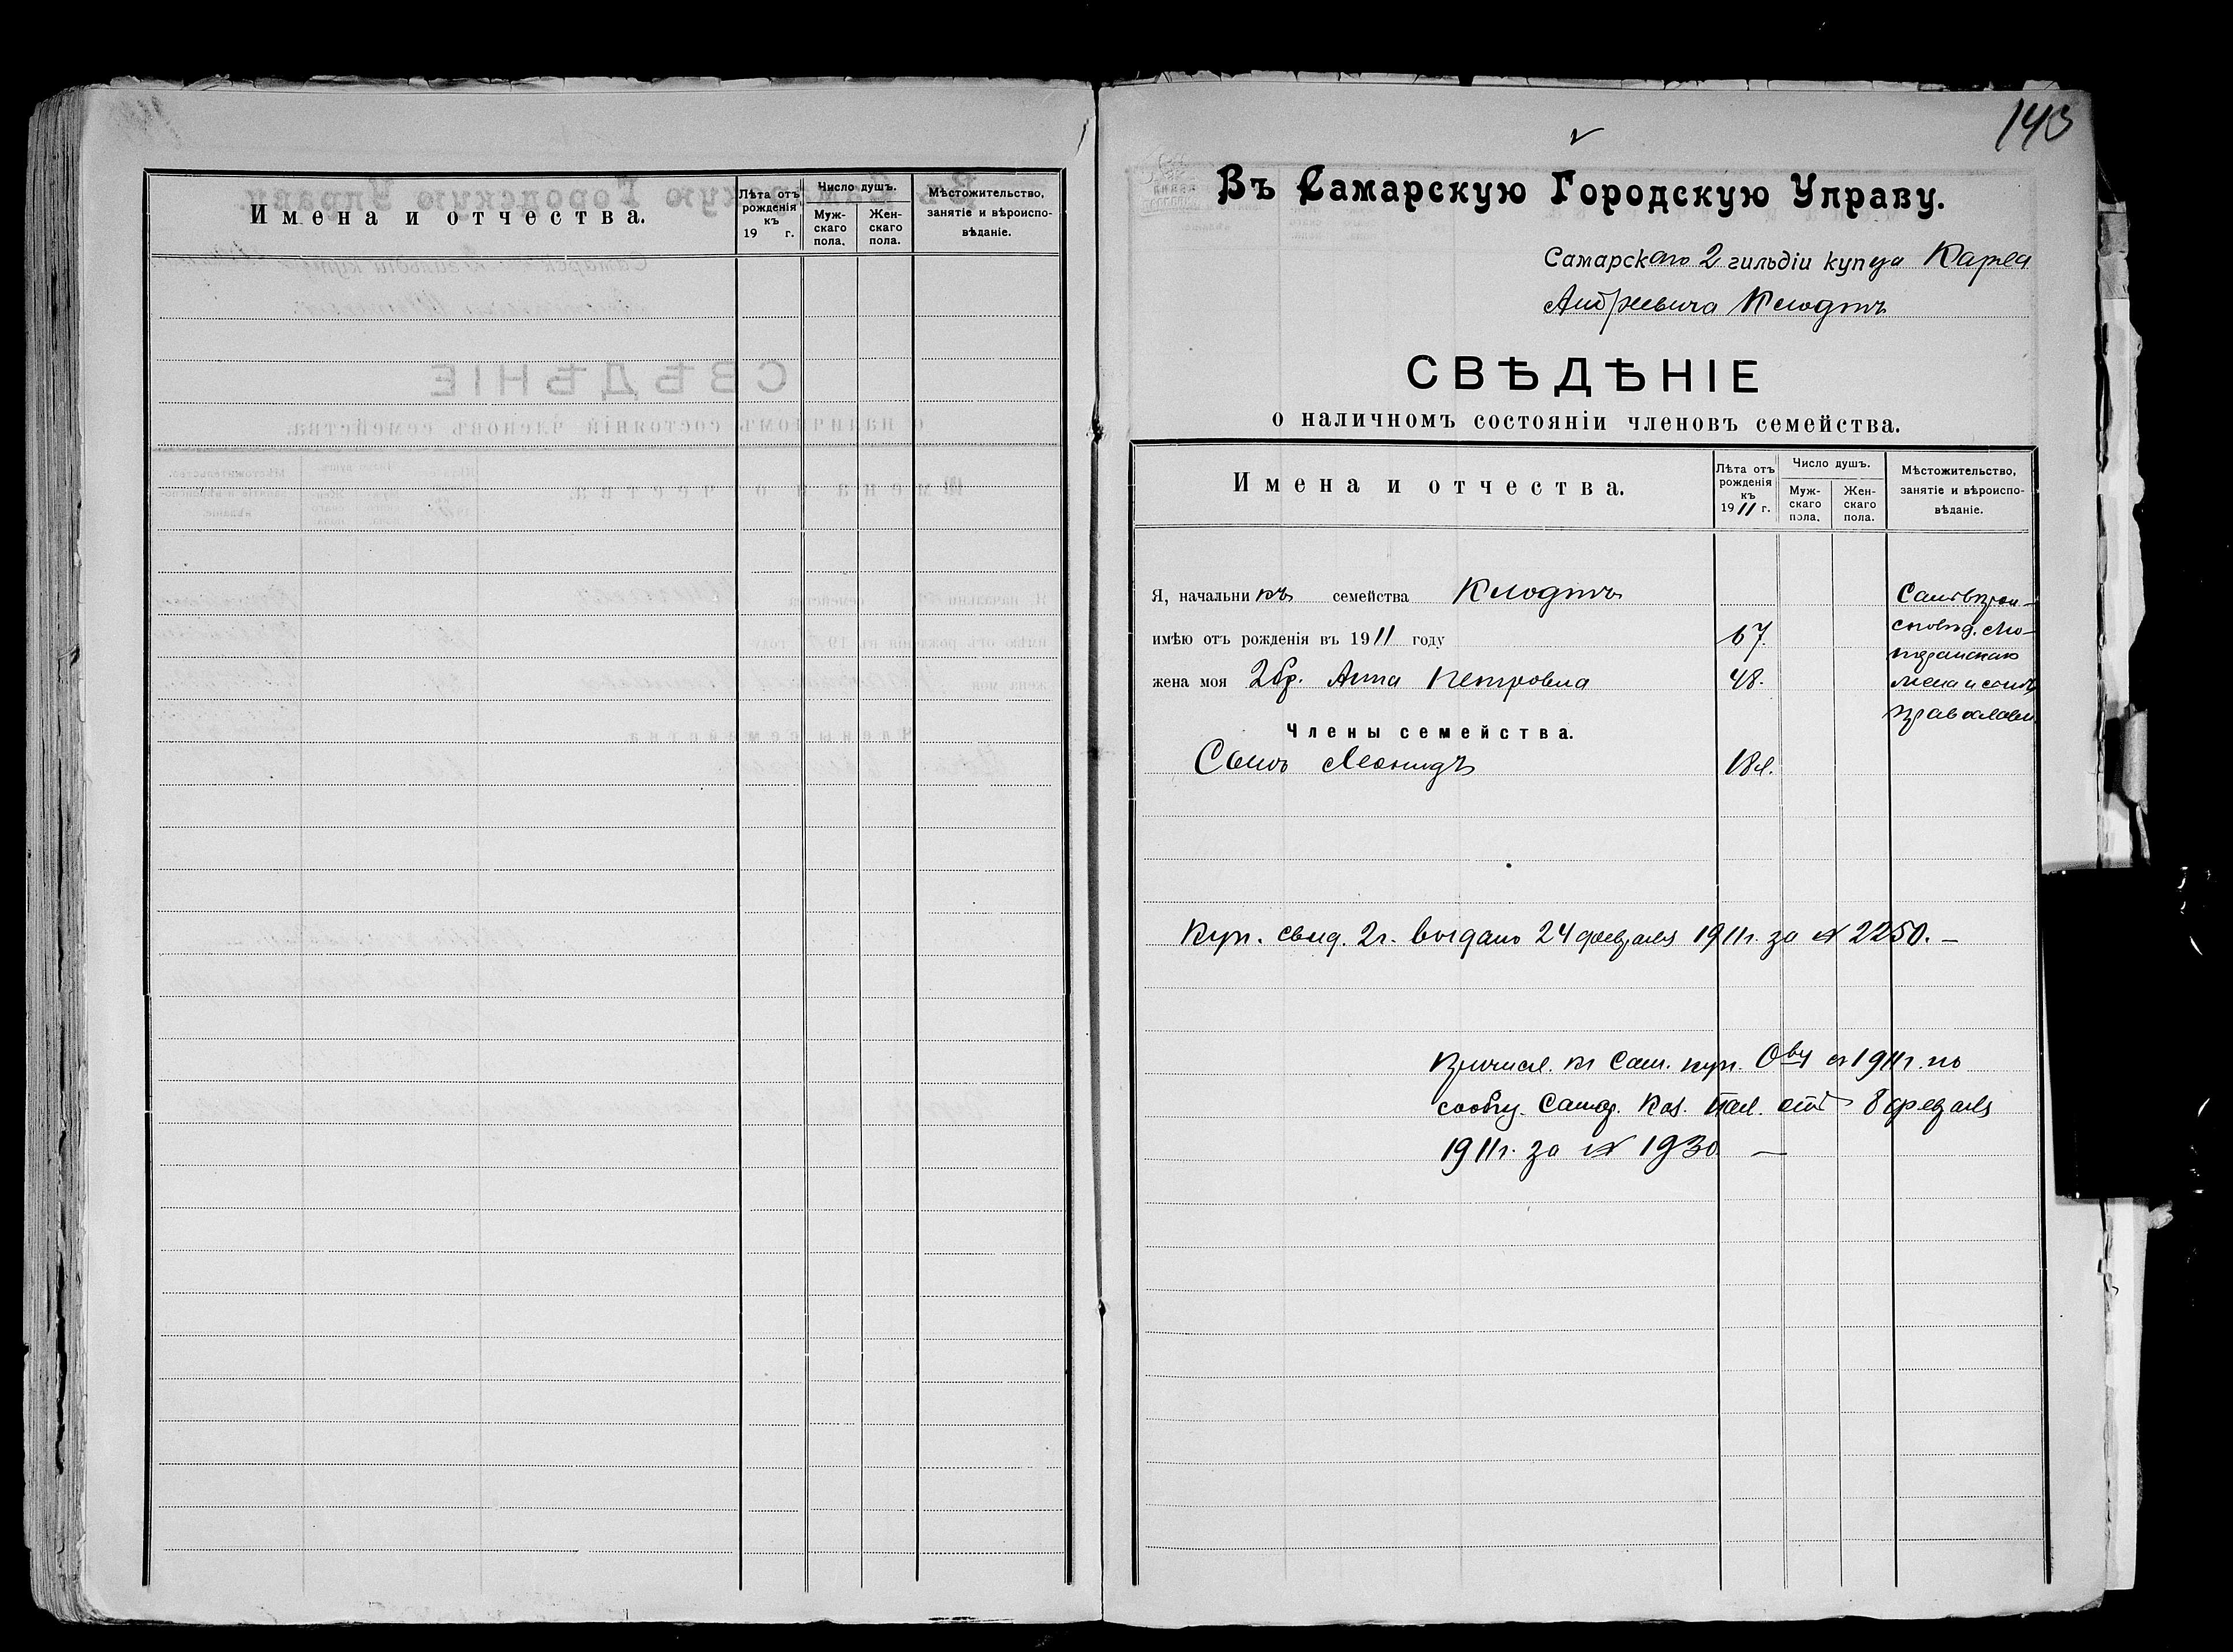 Имена и отчества.
Лѣта отъ рожденія къ 19 г.
Число душъ.
Муж-скаго пола.
Жен-скаго пола.
Мѣстожительство, занятіе и вѣроиспо-вѣданіе.
143
Въ Самарскую Городскую Управу.
Самарскаго 2 гильдіи купца Карла
Андреевича Клодтъ
СВѢДѢНІЕ
о наличномъ состояніи членовъ семейства.
Имена и отчества.
Лѣта отъ рожденія къ 1911 г.
Число душъ.
Муж-скаго пола.
Жен-скаго пола.
Мѣстожительство, занятіе и вѣроиспо-вѣданіе.
Я, начальникъ семейства Клодтъ
имѣю отъ рожденія въ 1911 году 67.
жена моя 2 бр. Анна Петровна 48.
Самъ вѣрои-
сповѣд. Лю-
теранскаго
жена и сынъ
православн.
Члены семейства.
Сынъ Леонидъ 18 л.
Куп. свид. 2 г. выдано 24 февраля 1911 г. за № 2250. —
Причисл. къ Сам. куп. Обву съ 1911 г. по
сообщ. Самар. Каз. Пал. отъ 8 февраля
1911 г. за № 1930 —